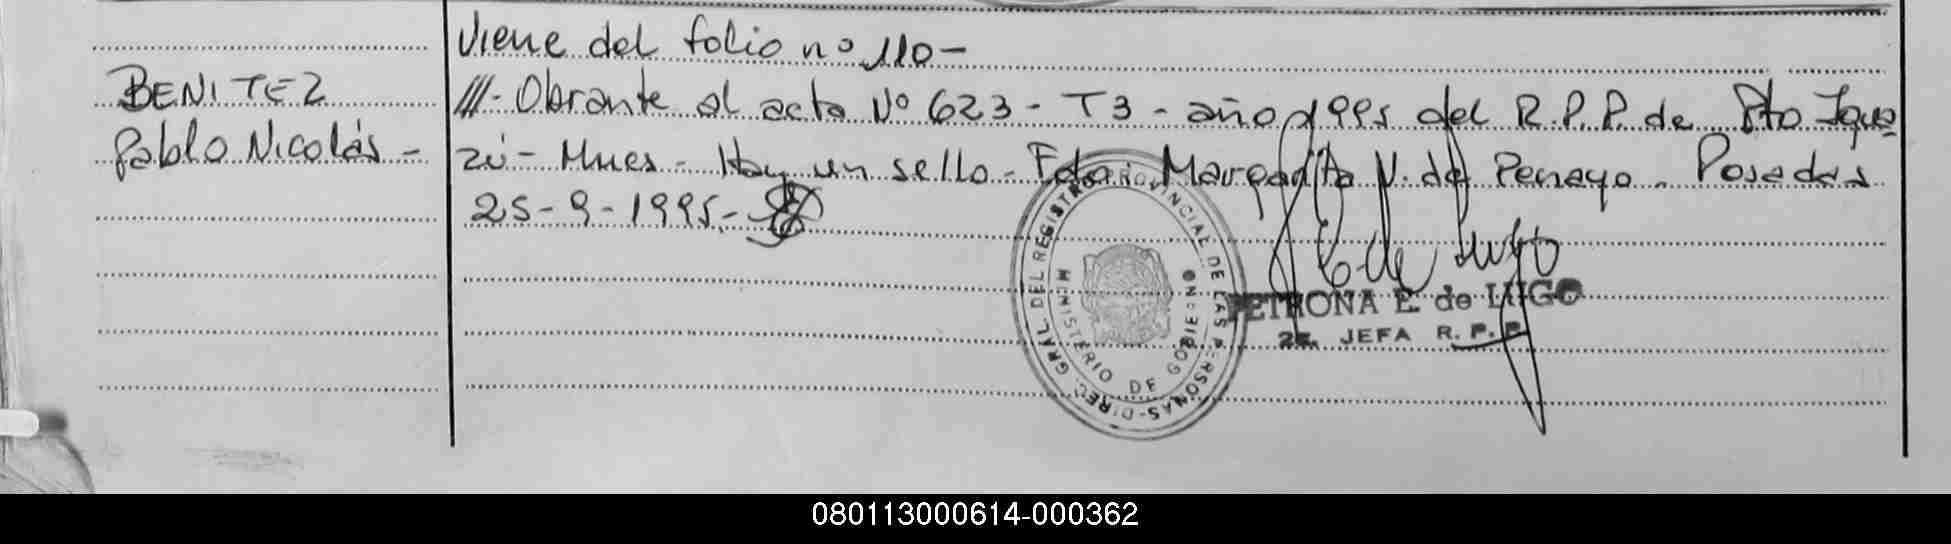 Viene del folio nº 110-
BENITEZ
Pablo Nicolás-
///- Obrante al acta Nº 623 - T3 - año 1995 del R.P.P. de Pto Igua-
zú - Mnes - Hay un sello - Fdo: Margarita N. de Penayo - Posadas
25-9-1995.-
DIREC. GRAL. DEL REGISTRO PROVINCIAL DE LAS PERSONAS
MINISTERIO DE GOBIERNO
E. de Lugo
PETRONA E. de LUGO
2ª. JEFA R. P. P.
080113000614-000362